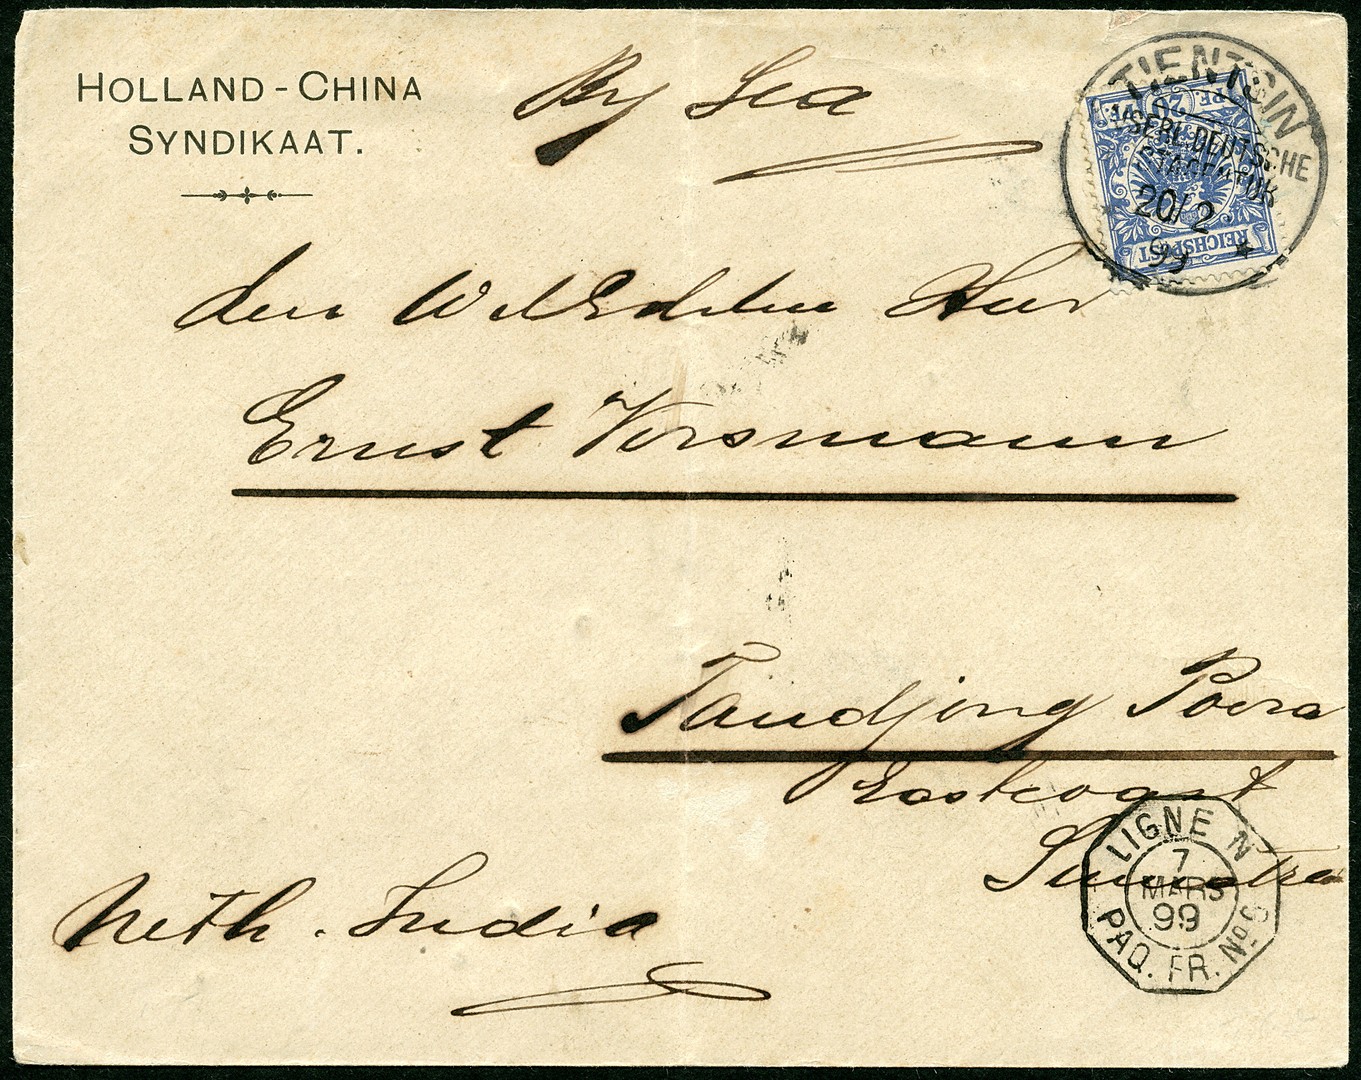 HOLLAND-CHINA
SYNDIKAAT.
By Sea
TIENTSIN
KAISERL. DEUTSCHE
POSTAGENTUR
20/2
99
20 PF.
REICHSPOST
den WelEdelen Heer
Ernst Vorsmann
Tandjong Poera
Eastcoast
Sumatra
Neth. India
LIGNE N
7
MARS
99
PAQ. FR. No 9